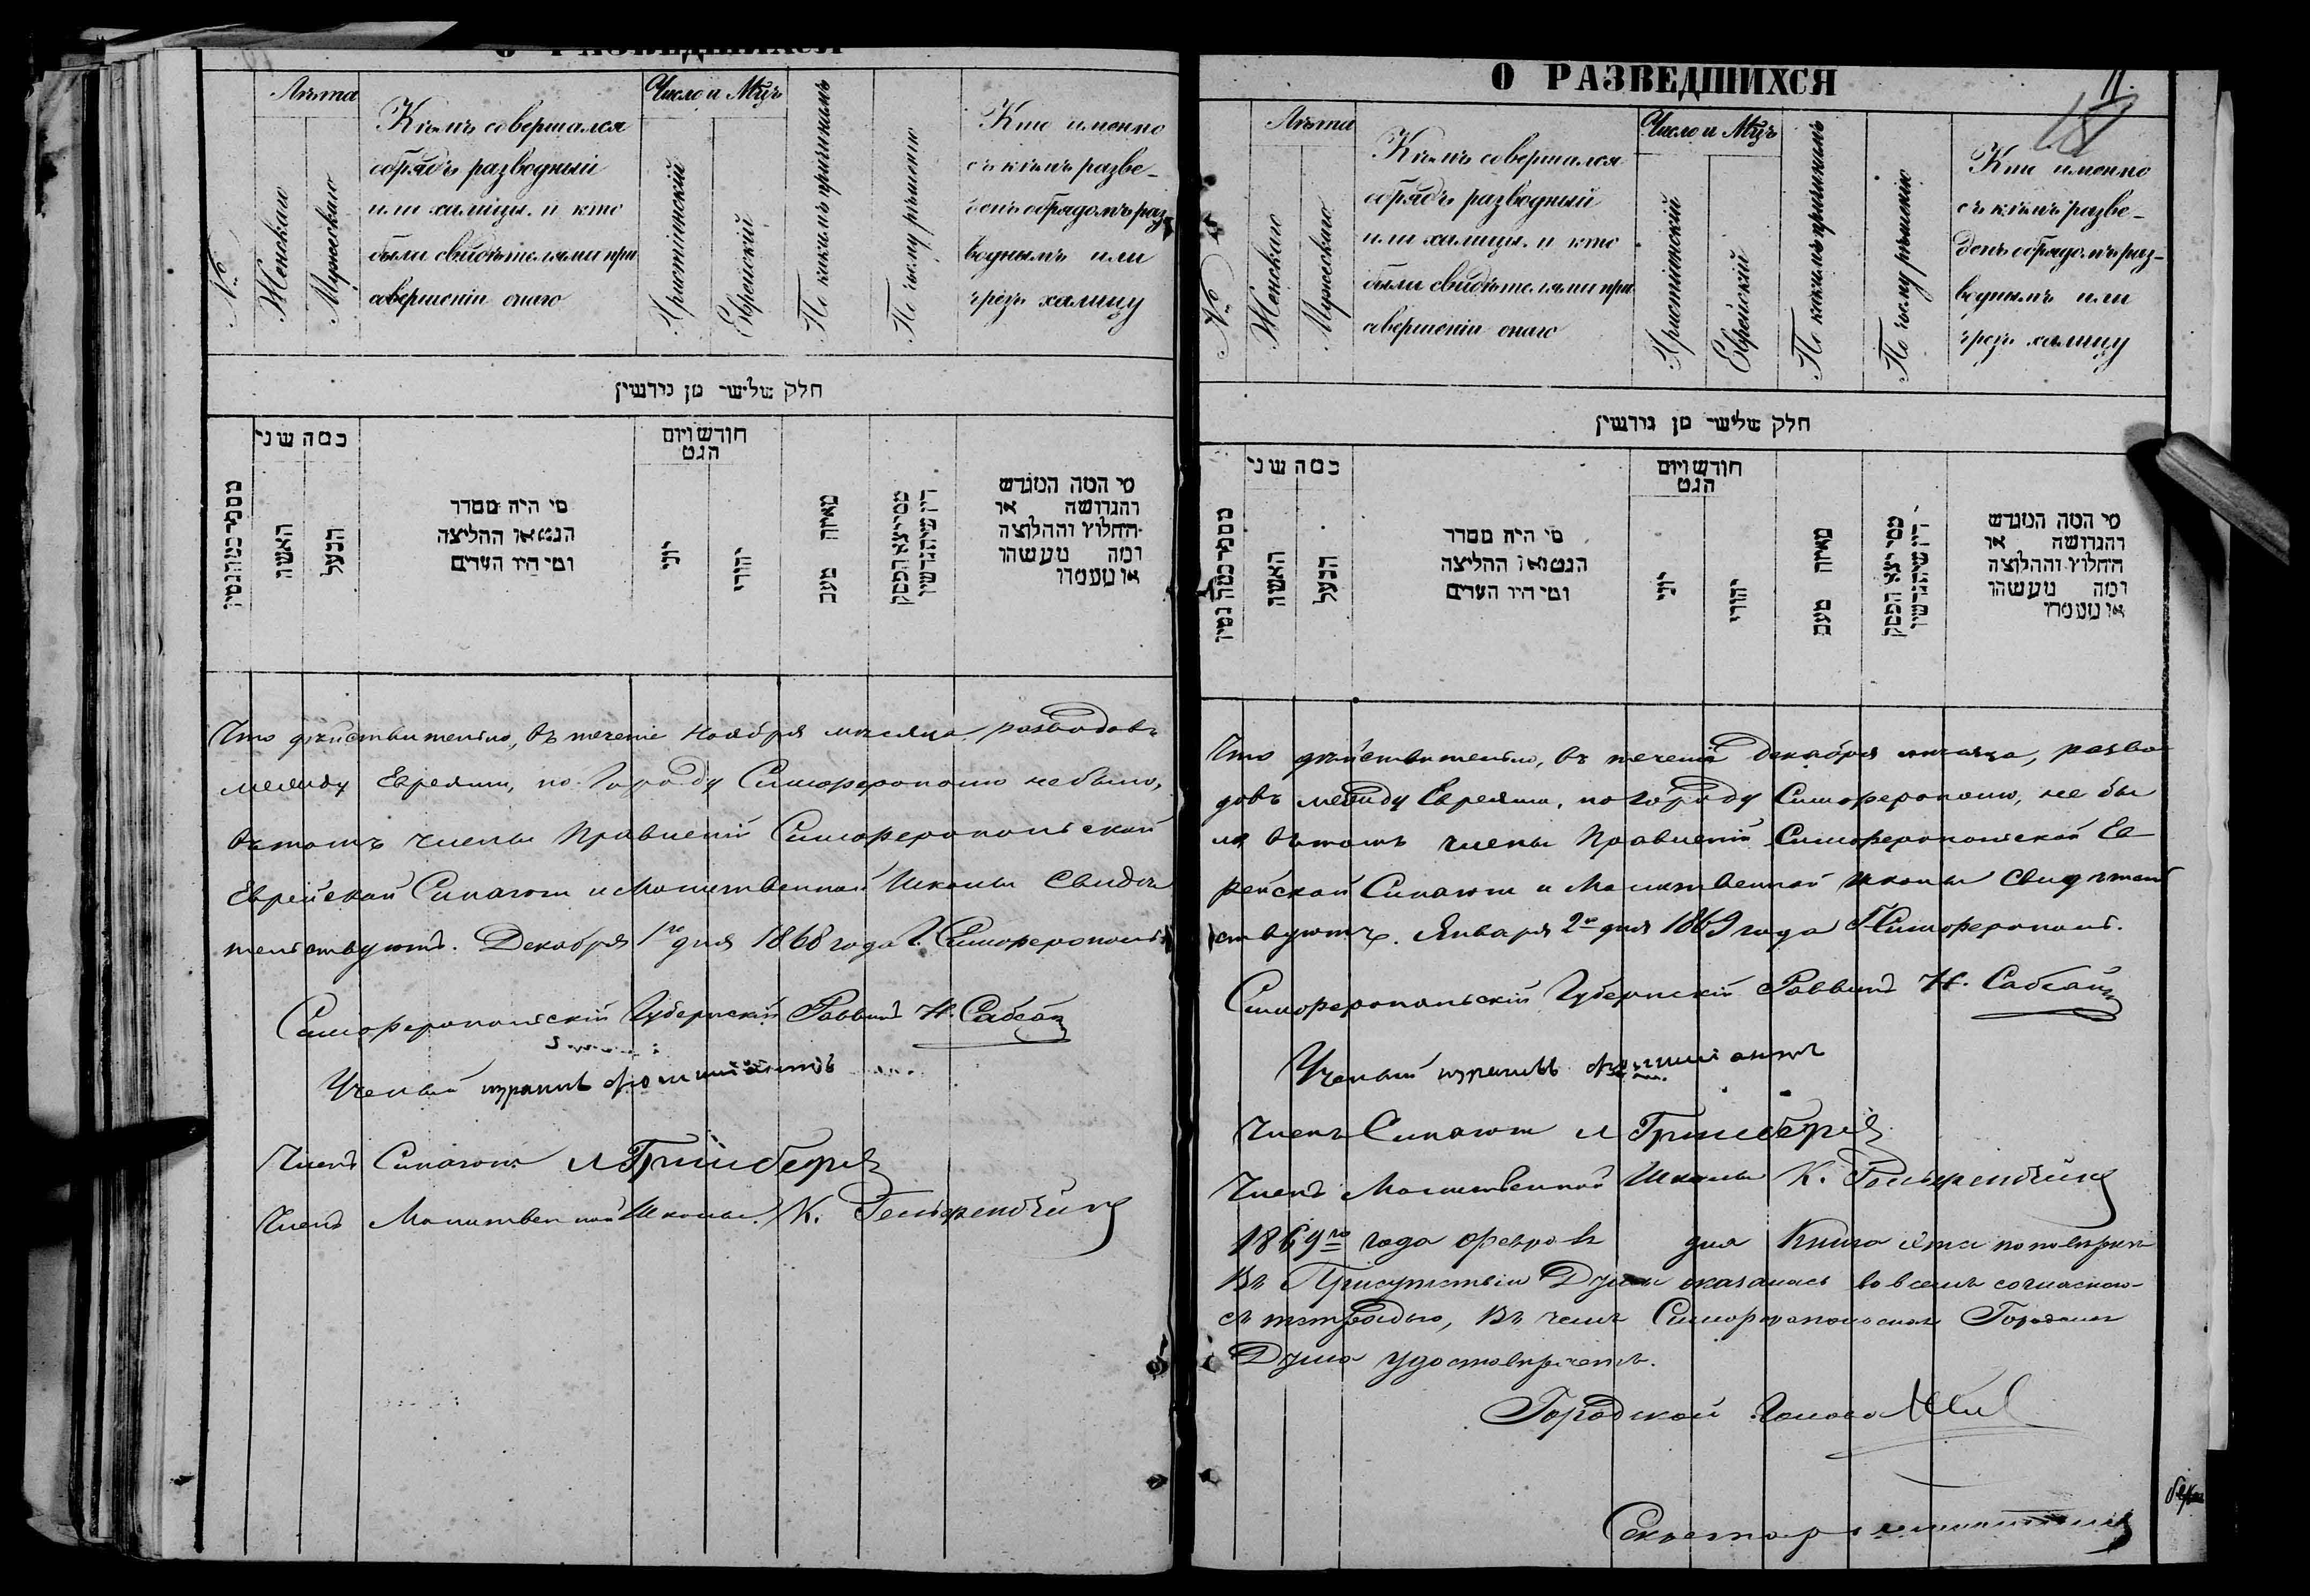 О РАЗВЕДШИХСЯ
№
Лѣта
Женскаго
Мужескаго
Кѣмъ совершался
обрядъ разводный
или халицы. и кто
были свидѣтелями при
совершеніи онаго
Число и Мцъ
Христіянскій
Еврейскій
По какимъ причинамъ
По чьему рѣшенію
Кто именно
съ кѣмъ разве-
денъ обрядомъ раз-
воднымъ или
чрезъ халицу
חלק שלישי מן גירושין
כמה שני
האשה
הבעל
מי היה מסדר
הגט או החליצה
ומי היו העדים
חודש ויום
הגט
יהודי
מי המה המגרש
והגרושה או
החלוץ וההלוצה
ומה מעשהו
או מעמדו
Что дѣйствительно, въ теченіе Ноября мѣсяца разводовъ
между Евреями, по Городу Симферополю не было,
въ томъ члены Правленій Симферопольской
Еврейской Синагоги и Молитвенной Школы Свидѣ
тельствуютъ. Декабря 1го дня 1868 года Г. Симферополь
Симферопольскій Губернскій Раввинъ Н.
Ученый
Членъ Синагоги Л Гринберг
Членъ Молитвенной Школы. К.
О РАЗВЕДШИХСЯ
11.
18
№
Лѣта
Женскаго
Мужескаго
Кѣмъ совершался
обрядъ разводный
или халицы. и кто
были свидѣтелями при
совершеніи онаго
Число и Мцъ
Христіянскій
Еврейскій
По какимъ причинамъ
По чьему рѣшенію
Кто именно
съ кѣмъ разве-
денъ обрядомъ раз-
воднымъ или
чрезъ халицу
חלק שלישי מן גירושין
כמה שני
האשה
הבעל
מי היה מסדר
הגט או החליצה
ומי היו העדים
חודש ויום
הגט
יהודי
מי המה המגרש
והגרושה או
החלוץ וההלוצה
ומה מעשהו
או מעמדו
Что дѣйствительно, въ теченіи Декабря мѣсяца, разво
довъ между Евреями, по Городу Симферополю, не бы
ло въ томъ члены Правленій Симферопольской Ев
рейской Синагоги и Молитвенной школы Свидѣтель
ствуютъ. Января 2го дня 1869 года Г. Симферополь.
Симферопольскій Губернскій Раввинъ Н.
Ученый
Членъ Синагоги Л Гринберг
Членъ Молитвенной Школы К.
1869го года Февраля дня Книга эта по повѣркѣ
Въ Присутствіи Думы оказалась во всемъ согласною
съ тетрадью, Въ чемъ Симферопольская Городская
Дума удостовѣряетъ.
Городской Голова
Секретарь